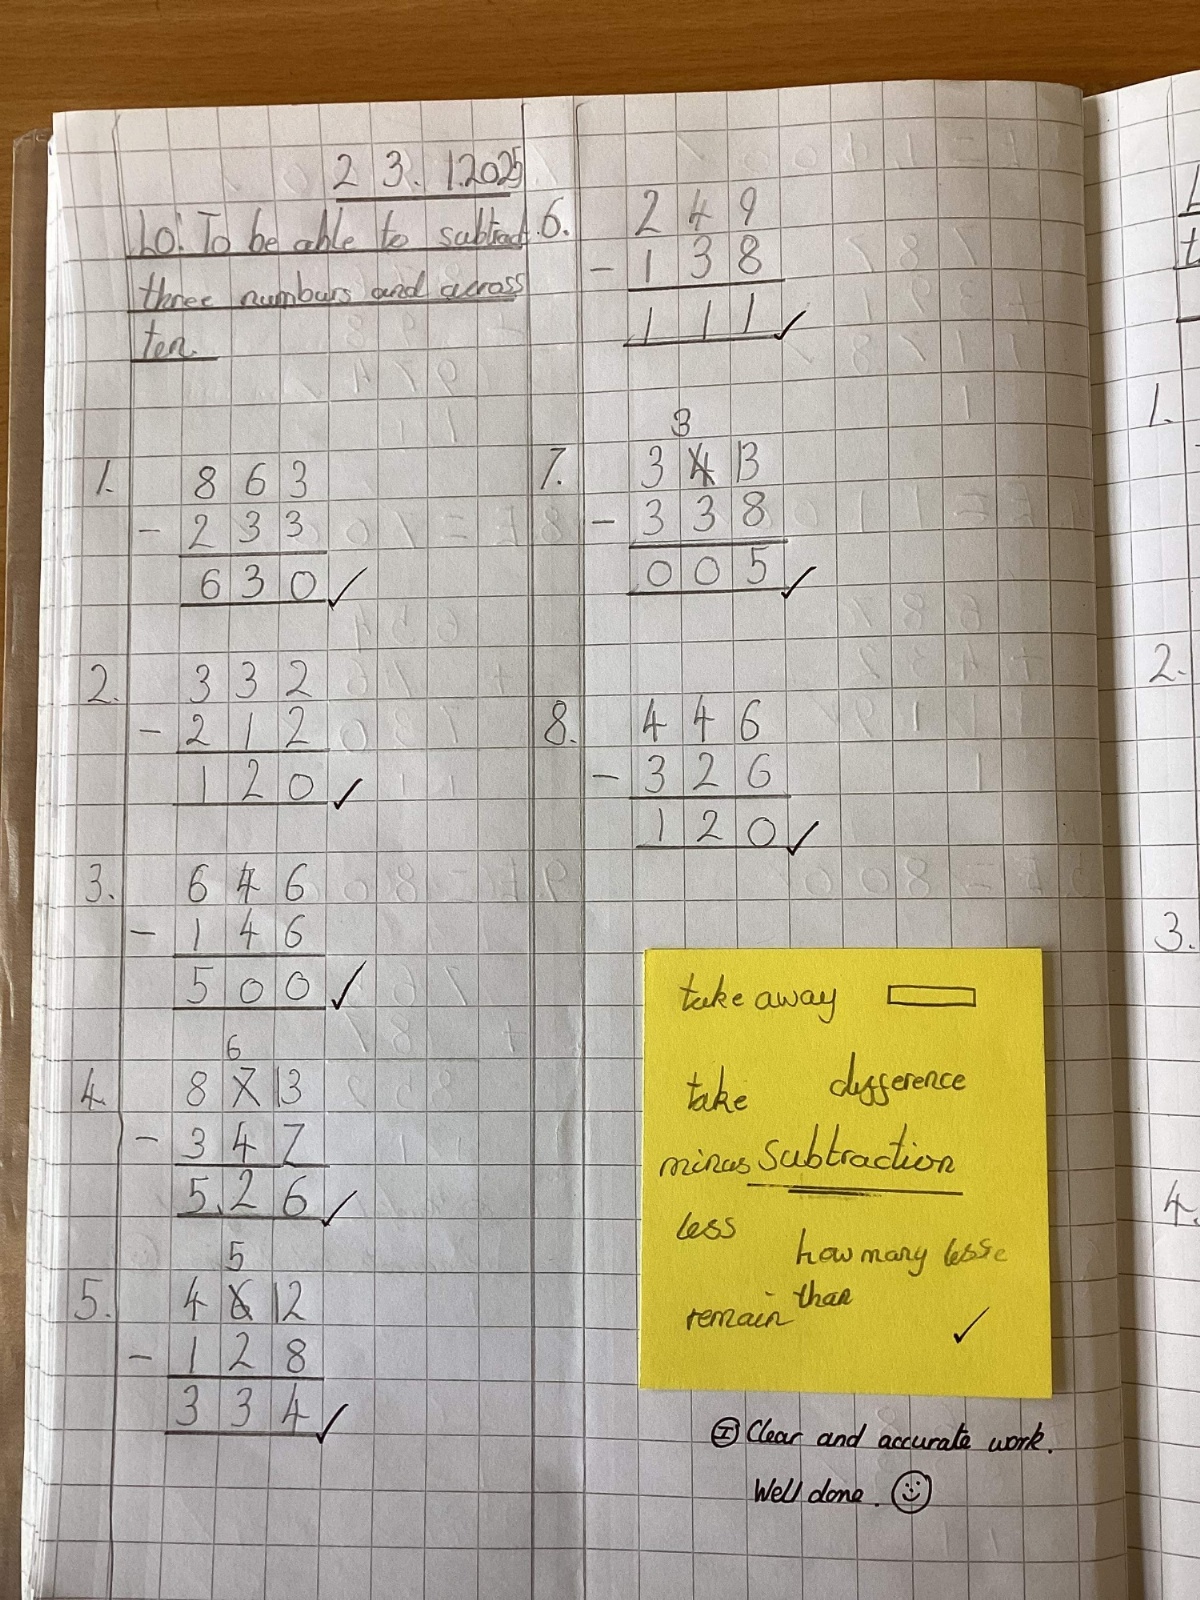 23.1.2025
LO: To be able to subtract
three numburs and across
ten.
1. 863
- 233
630 ✓
2. 332
- 212
120 ✓
3. 646
- 146
500 ✓
6
4. 8 7 13
- 347
526 ✓
5
5. 4 6 12
- 128
334 ✓
6. 249
- 138
111 ✓
3
7. 3 4 13
- 338
005 ✓
8. 446
- 326
120 ✓
take away
take difference
minus subtraction
less
how many
than
remain
✓
I Clear and accurate work.
Well done. ☺
1.
2.
3.
4.